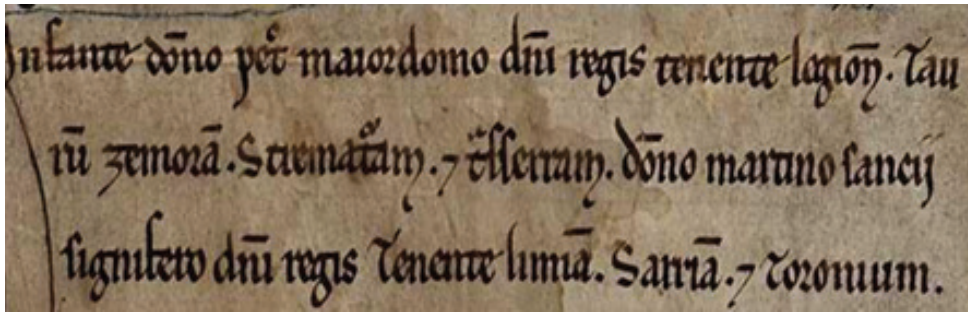 Infante dōno pet̃ maiordomo dn̄i regis tenente legioñ. Tau
rū zemorā. Stremat̃am. ⁊ t̃sserram. dōno martino sancij
signifero dn̄i regis Tenente limiā. Sarriā. ⁊ Toronium.